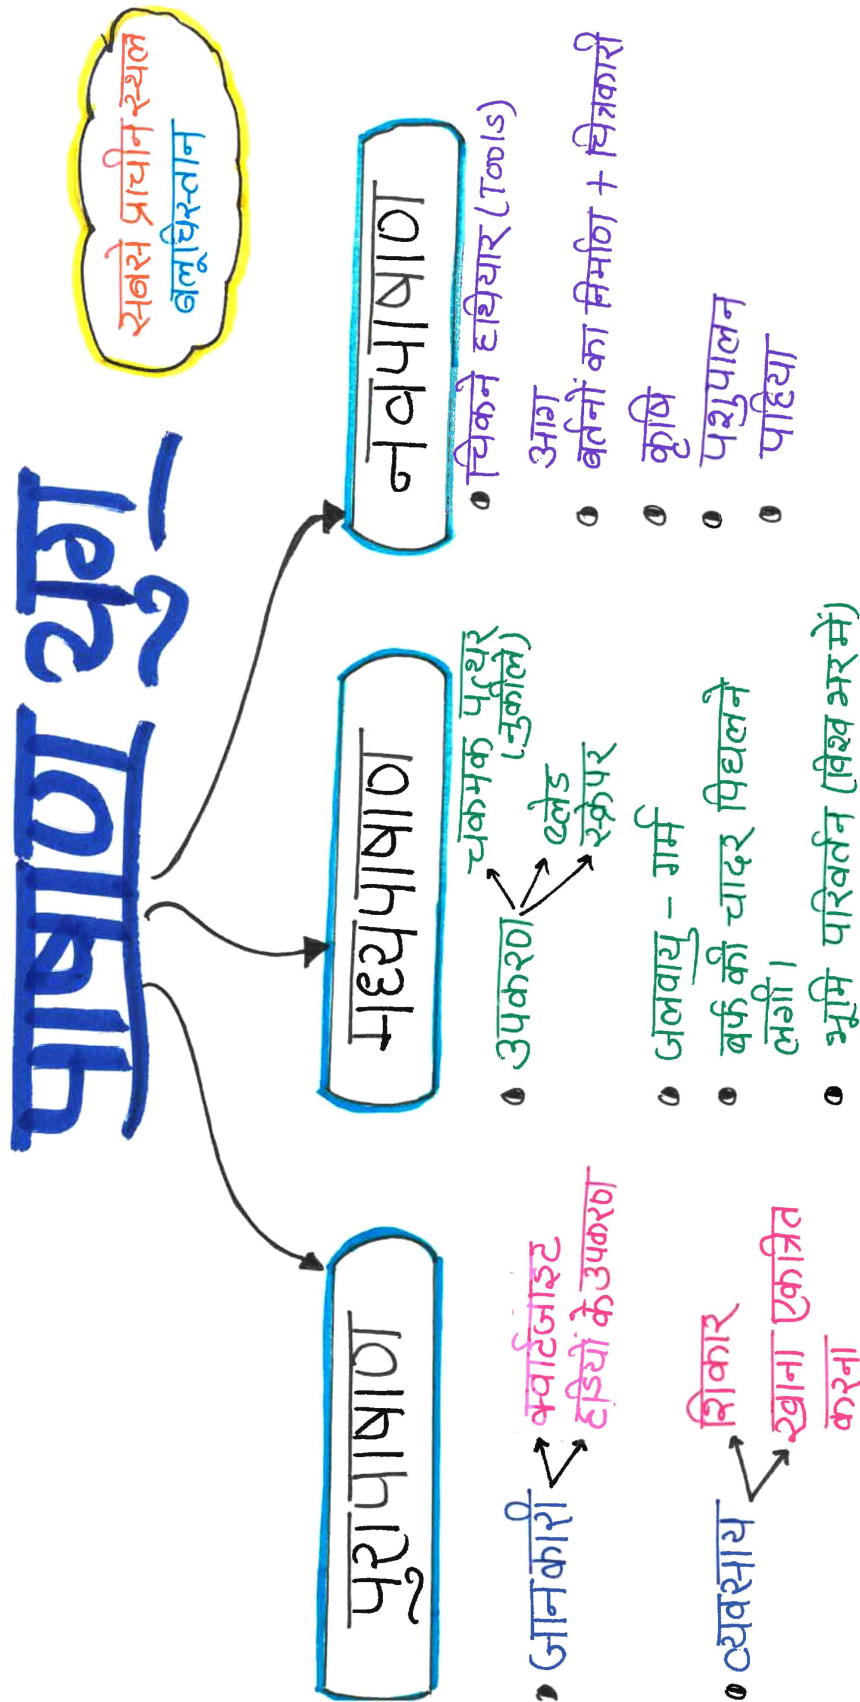 पाषाण युग
सबसे प्राचीन स्थल
बलूचिस्तान
पुरापाषाण
जानकारी
क्वार्टजाइट
हड्डियों के उपकरण
व्यवसाय
शिकार
खाना एकत्रित
करना
मध्यपाषाण
उपकरण
चकमक पत्थर
(नुकीले)
ब्लेड
स्क्रेपर
जलवायु - गर्म
बर्फ की चादर पिघलने
लगी।
भूमि परिवर्तन (विश्व भर में)
नवपाषाण
चिकने हथियार (Tools)
आग
बर्तनों का निर्माण + चित्रकारी
कृषि
पशुपालन
पहिया